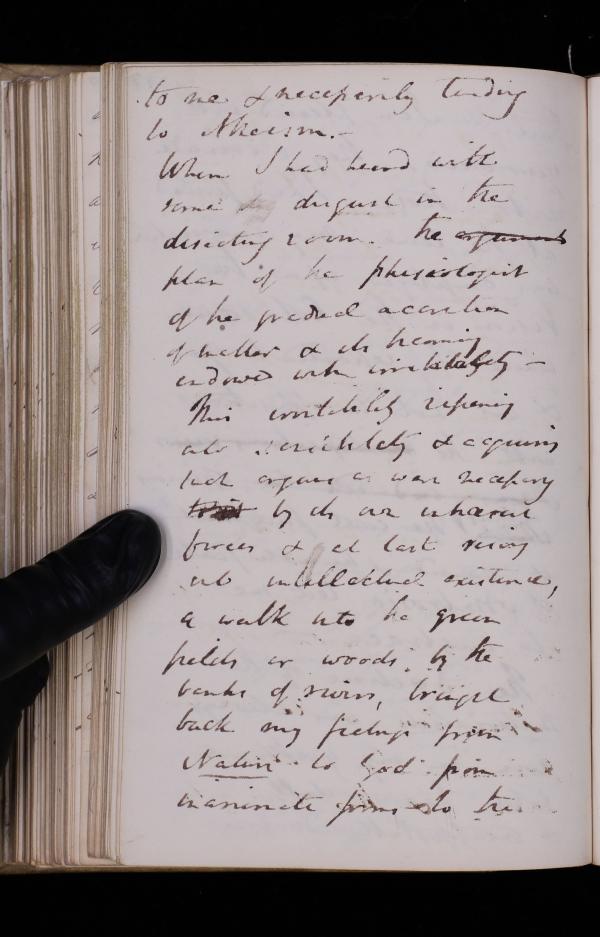 to me & necessarily tending
to Atheism.-
When I had heard with
some disgust in the
disecting room. the argument
plan of the physiologist
of the gradual accretion
of matter & its becoming
endowed with irritability -
This irritability ripening
into sensibility & acquiring
such organs as were necessary
by its own inherent
forces & at last rising
into intellectual existence,
a walk into the green
fields or woods by the
banks of rivers, brought
back my feelings from
Nature to God from
inanimate forms to the